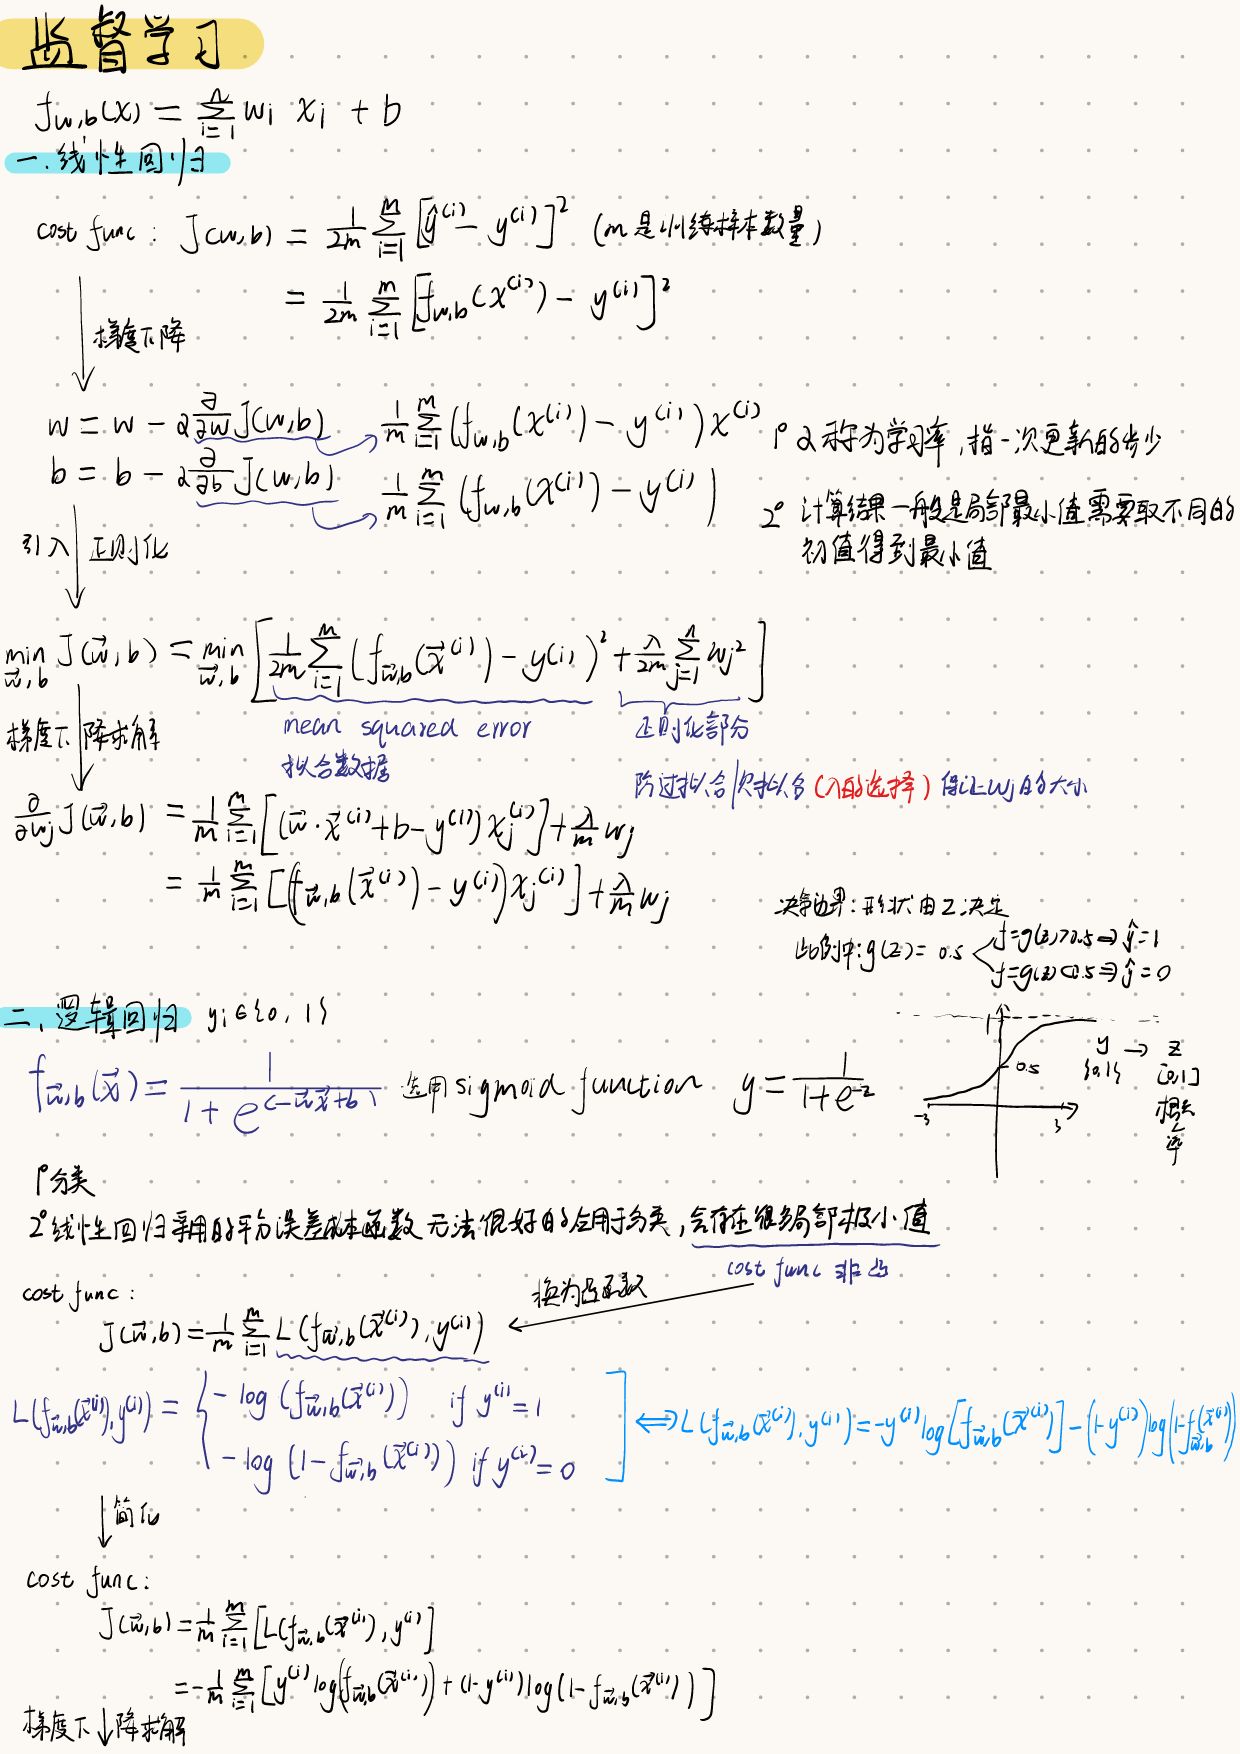 监督学习
f_{w,b}(x) = \sum_{i=1}^{n} w_i x_i + b
一.线性回归
cost func : J(w,b) = \frac{1}{2m} \sum_{i=1}^{m} [\hat{y}^{(i)} - y^{(i)}]^2 (m是训练样本数量)
= \frac{1}{2m} \sum_{i=1}^{m} [f_{w,b}(x^{(i)}) - y^{(i)}]^2
梯度下降
w = w - α \frac{∂}{∂w} J(w,b) → \frac{1}{m} \sum_{i=1}^{m} (f_{w,b}(x^{(i)}) - y^{(i)}) x^{(i)}
b = b - α \frac{∂}{∂b} J(w,b) → \frac{1}{m} \sum_{i=1}^{m} (f_{w,b}(x^{(i)}) - y^{(i)})
1° α称为学习率,指一次更新的步少
2° 计算结果一般是局部最小值需要取不同的
初值得到最小值
引入 正则化
\min_{\vec{w},b} J(\vec{w},b) = \min_{\vec{w},b} [\frac{1}{2m} \sum_{i=1}^{m} (f_{\vec{w},b}(\vec{x}^{(i)}) - y^{(i)})^2 + \frac{λ}{2m} \sum_{j=1}^{n} w_j^2]
mean squared error
拟合数据
正则化部分
防过拟合/欠拟合(λ的选择)保证w_j的大小
梯度下降求解
\frac{∂}{∂w_j} J(\vec{w},b) = \frac{1}{m} \sum_{i=1}^{m} [(\vec{w}·\vec{x}^{(i)} + b - y^{(i)}) x_j^{(i)}] + \frac{λ}{m} w_j
= \frac{1}{m} \sum_{i=1}^{m} [(f_{\vec{w},b}(\vec{x}^{(i)}) - y^{(i)}) x_j^{(i)}] + \frac{λ}{m} w_j
决策边界:形状由z决定
此例中:g(z) = 0.5
f=g(z)>0.5 ⇒ \hat{y}=1
f=g(z)<0.5 ⇒ \hat{y}=0
二、逻辑回归 y_i ∈ {0, 1}
f_{\vec{w},b}(\vec{x}) = \frac{1}{1 + e^{(-\vec{w}\vec{x}+b)}} 选用 sigmoid function y = \frac{1}{1+e^{-z}}
1
0.5
-3
3
y → z
{0,1} [0,1]
概率
1° 分类
2° 线性回归采用的平方误差成本函数无法很好的应用于分类,会存在很多局部极小值
cost func 非凸
换为凸函数
cost func :
J(\vec{w},b) = \frac{1}{m} \sum_{i=1}^{m} L(f_{\vec{w},b}(\vec{x}^{(i)}), y^{(i)})
L(f_{\vec{w},b}(\vec{x}^{(i)}), y^{(i)}) = { - log (f_{\vec{w},b}(\vec{x}^{(i)})) if y^{(i)} = 1
- log (1 - f_{\vec{w},b}(\vec{x}^{(i)})) if y^{(i)} = 0
⇔ L(f_{\vec{w},b}(\vec{x}^{(i)}), y^{(i)}) = -y^{(i)} log [f_{\vec{w},b}(\vec{x}^{(i)})] - (1-y^{(i)}) log (1-f_{\vec{w},b}(\vec{x}^{(i)}))
简化
cost func :
J(\vec{w},b) = \frac{1}{m} \sum_{i=1}^{m} [L(f_{\vec{w},b}(\vec{x}^{(i)}), y^{(i)}]
= -\frac{1}{m} \sum_{i=1}^{m} [y^{(i)} log(f_{\vec{w},b}(\vec{x}^{(i)})) + (1-y^{(i)}) log (1 - f_{\vec{w},b}(\vec{x}^{(i)}))]
梯度下降求解